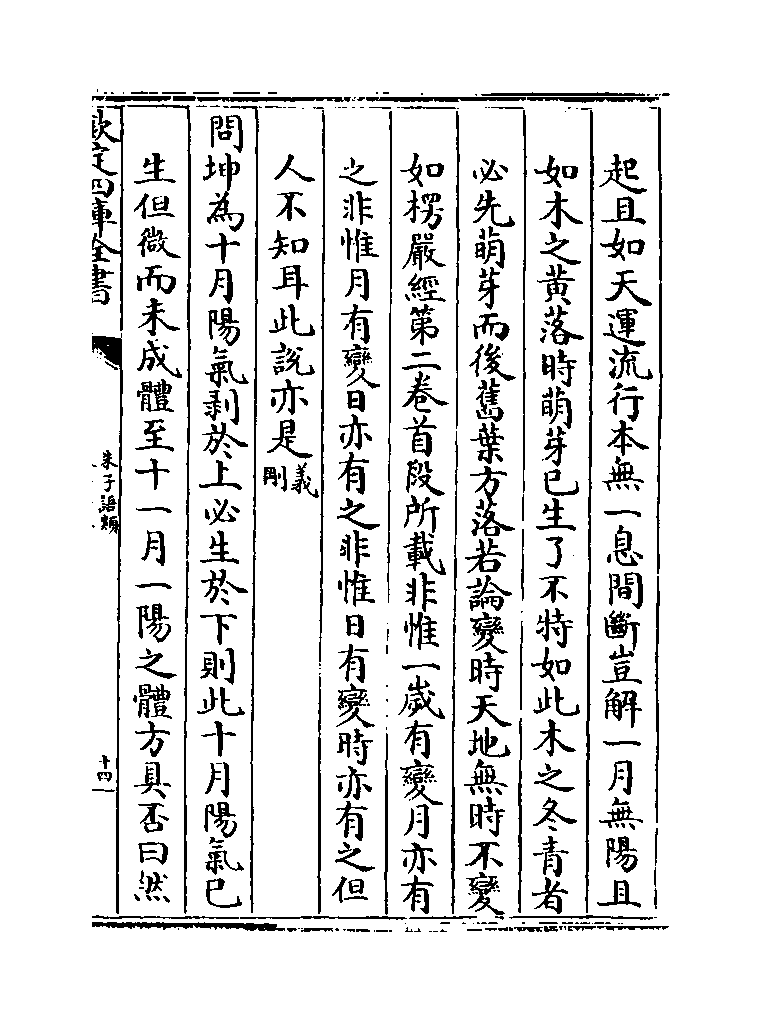 起且如天運流行本無一息間斷豈解一月無陽且
如木之黄落時萌芽已生了不特如此木之冬青者
必先萌芽而後舊葉方落若論變時天地無時不變
如楞嚴經第二卷首段所載非惟一歲有變月亦有
之非惟月有變日亦有之非惟日有變時亦有之但
人不知耳此説亦是義剛
問坤為十月陽氣剥於上必生於下則此十月陽氣已
生但微而未成體至十一月一陽之體方具否曰然
欽定四庫全書
朱子語類
十四